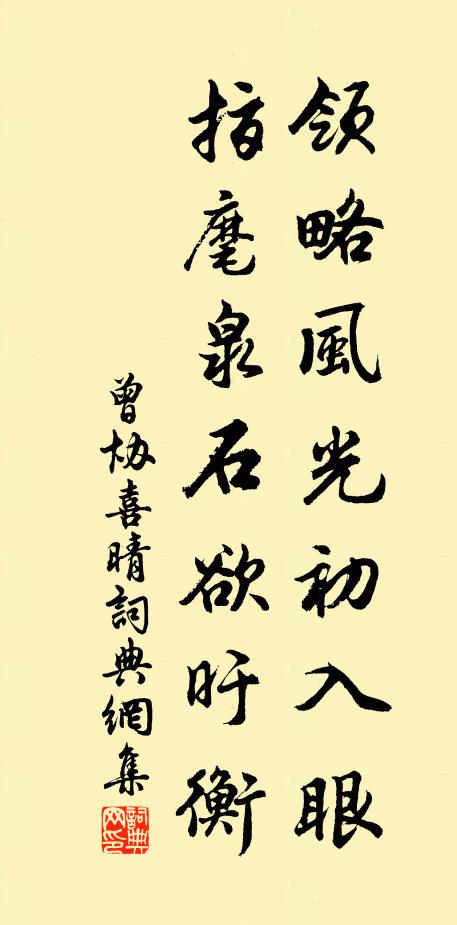 領略風光初入眼
指麾泉石欲盱衡
曾協喜晴詞典網集
詞典网印